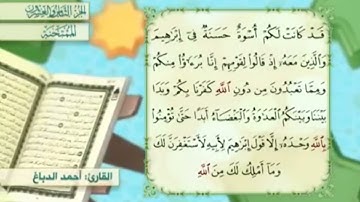 الجزء الثامن والعشرون
الممتحنة
قَدْ كَانَتْ لَكُمْ أُسْوَةٌ حَسَنَةٌ فِي إِبْرَاهِيمَ
وَالَّذِينَ مَعَهُ إِذْ قَالُوا لِقَوْمِهِمْ إِنَّا بُرَءَاؤُا مِنكُمْ
وَمِمَّا تَعْبُدُونَ مِن دُونِ اللَّهِ كَفَرْنَا بِكُمْ وَبَدَا
بَيْنَنَا وَبَيْنَكُمُ الْعَدَاوَةُ وَالْبَغْضَاءُ أَبَدًا حَتَّى تُؤْمِنُوا
بِاللَّهِ وَحْدَهُ إِلَّا قَوْلَ إِبْرَاهِيمَ لِأَبِيهِ لَأَسْتَغْفِرَنَّ لَكَ
وَمَا أَمْلِكُ لَكَ مِنَ اللَّهِ
القارئ: أحمد الدباغ